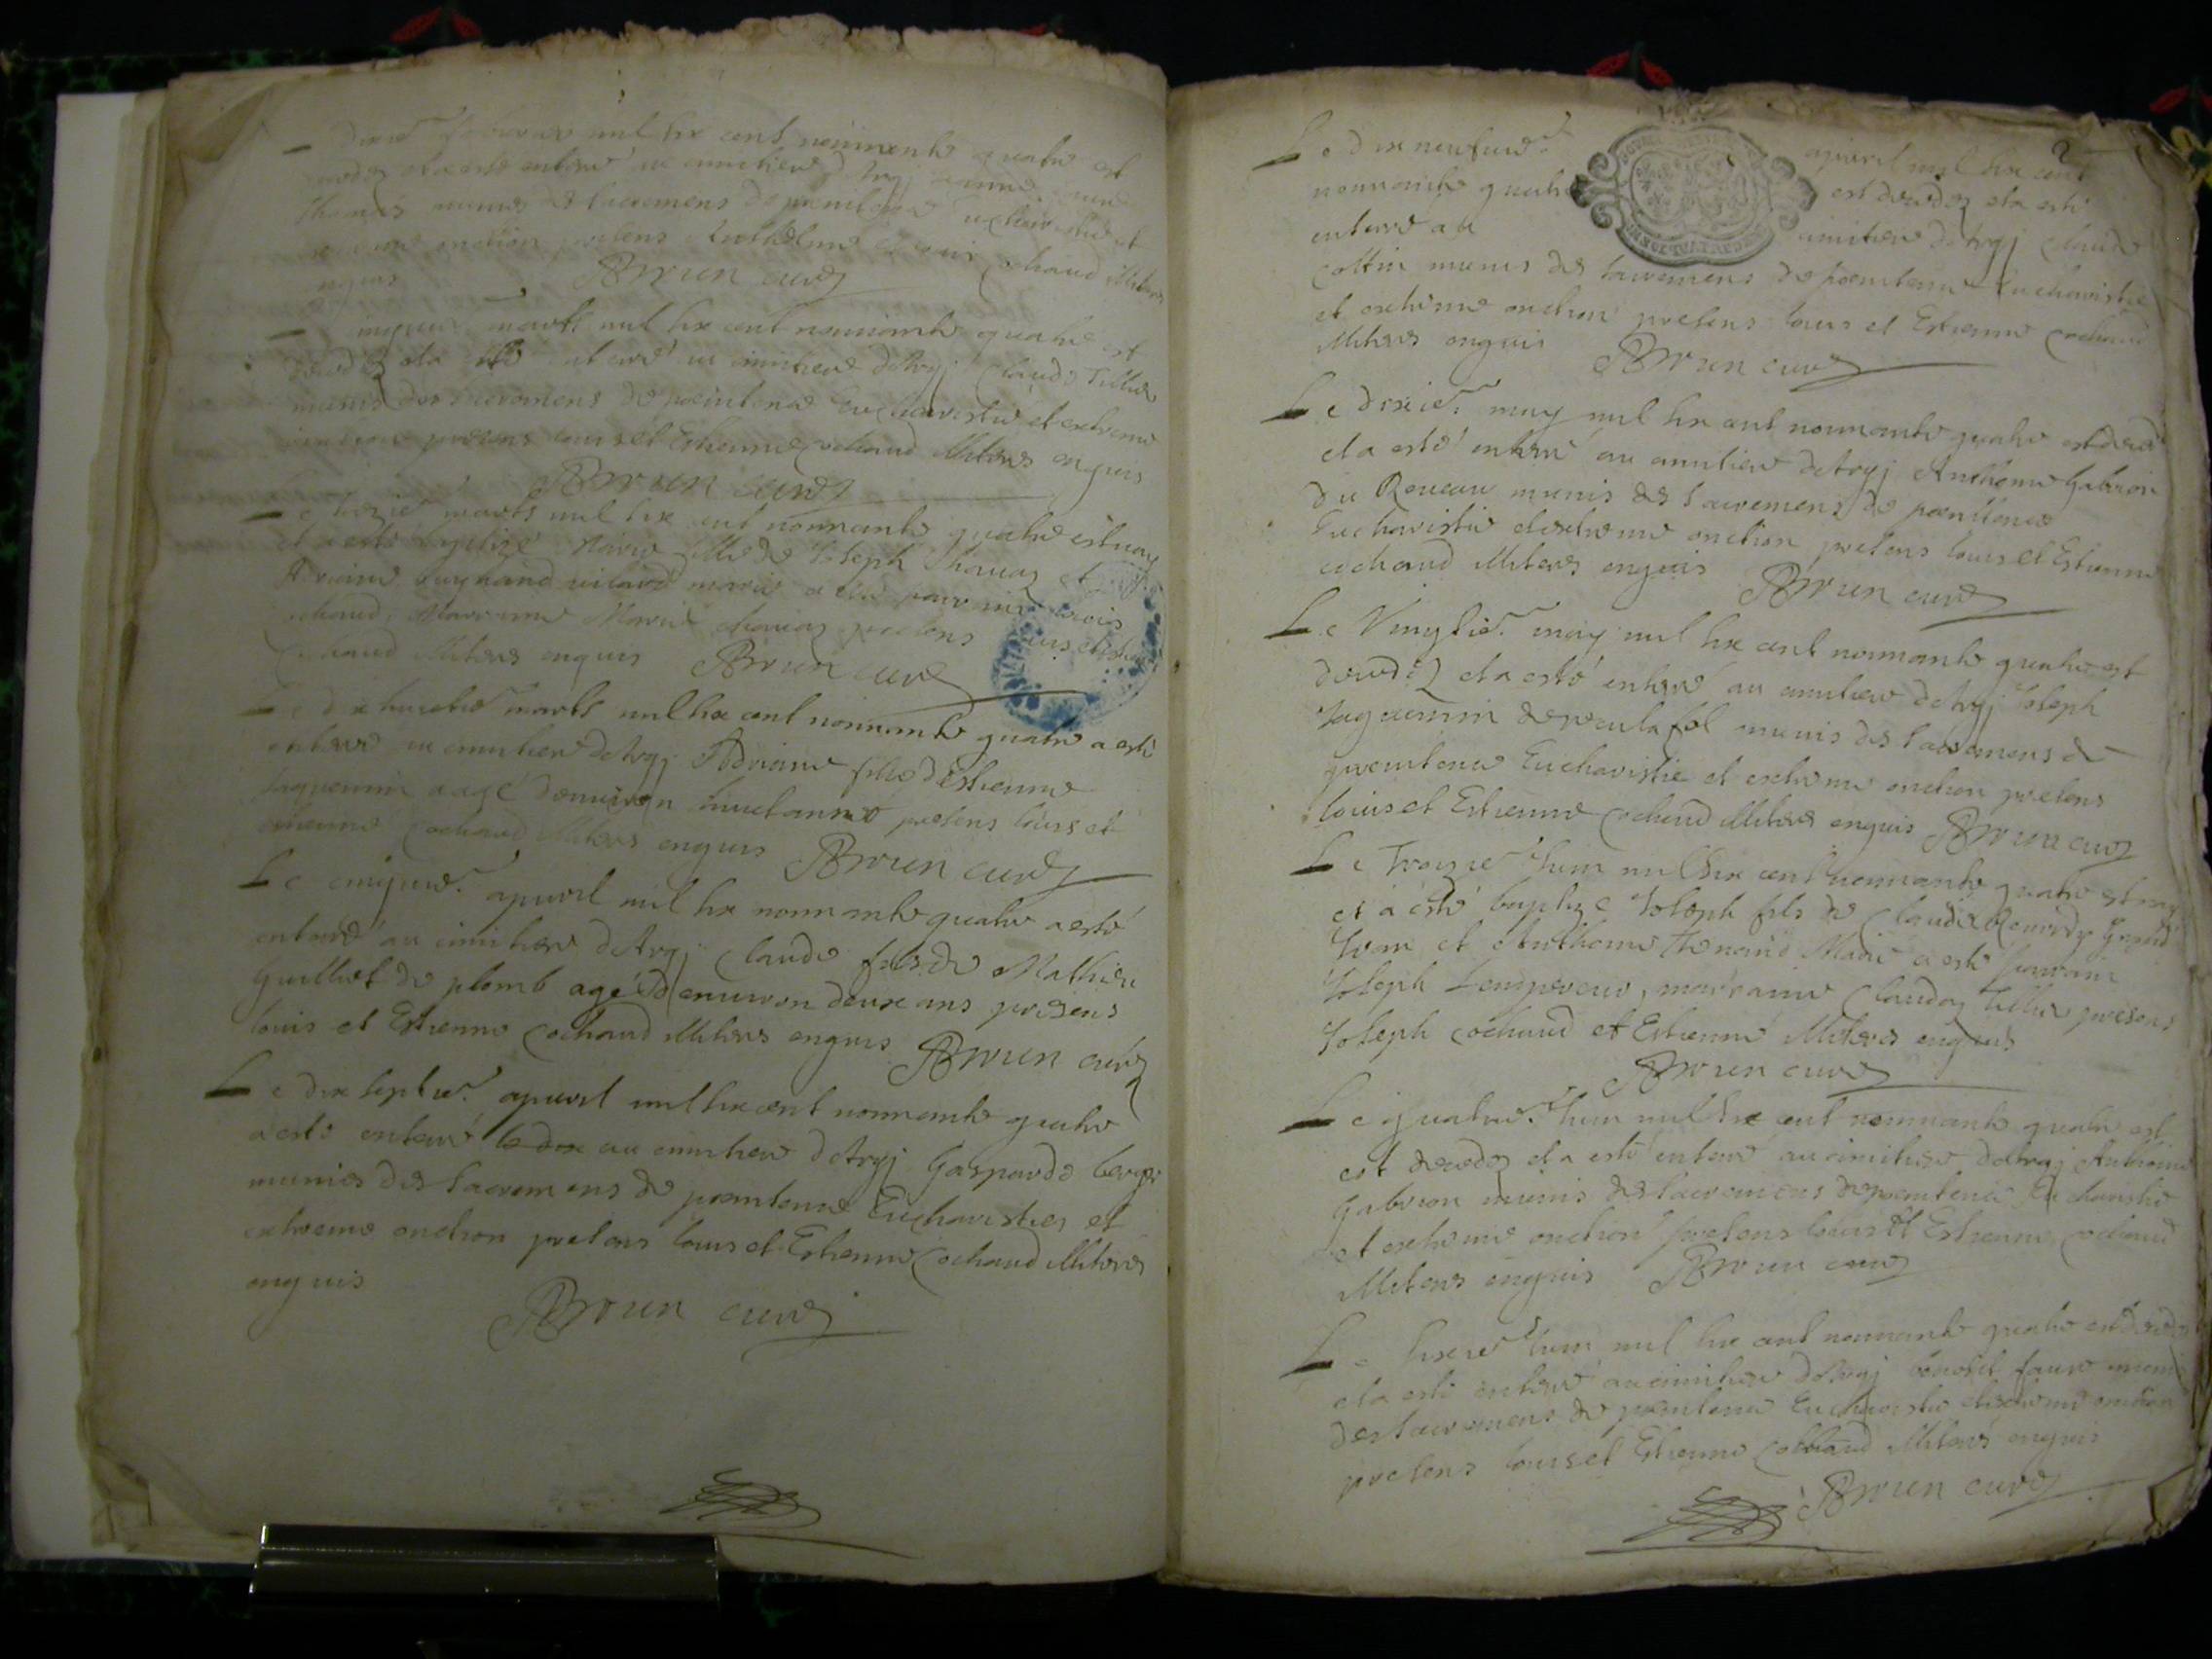 mil six cent nonnante quatre est
decedez et a esté enterré au cimitiere d'Argj
Thomas munis des sacremens de penitence Eucharistie et
extreme onction presens Anthelme et Louis Cochand illiteres
enquis ABrun curez
marts mil six cent nonnante quatre est
decedez et a esté enterré au cimitiere d'Argj Claude Tillier
munis des sacremens de poenitence Eucharistie et extreme
onction presens Louis et Estienne Cochand illiteres enquis
ABrun curez
Le marts mil six cent nonnante quatre est nay
et a esté baptizé fille de Joseph Chavaz et
marié a esté parrain
Cochand, Marraine Marie Chavaz presens
Cochand illiteres enquis ABrun curez
Le dix huictie. marts mil six cent nonnante quatre a esté
enterré au cimitiere d'Argj Adriane fille d'Estienne
Jaquemin aagé d'environ huict annés presens Louis et
Estienne Cochand illiteres enquis ABrun curez
Le cinquie. apvril mil six nonnante quatre a esté
enterré au cimitiere d'Argj Claude fils de Mathieu
Guilliet de plomb agé d'environ deux ans presens
Louis et Estienne Cochand illiteres enquis ABrun curez
Le dix septie. apvril mil six cent nonnante quatre
a esté enterré le dix au cimitiere d'Argj Gasparde berger
munies des sacremens de poenitence Eucharisties et
extreme onction presens Louis et Estienne Cochand illiteres
enquis
ABrun curez
2
Le dix neufvie. apvril mil six cent
nonnante quatre est decedez et a esté
enterré au cimitiere d'Argj Claude
Cottin munis des sacremens de poenitence Eucharistie
et extreme onction presens Louis et Estienne Cochand
illiteres enquis ABrun curez
Le dixie. may mil six cent nonnante quatre est decedé
et a esté enterré au cimitiere d'Argj Anthoine Gabrion
du Roueau munis des sacremens de poenitence
Eucharistie et extreme onction presens Louis et Estienne
Cochand illiteres enquis ABrun curez
Le Vingtie. may mil six cent nonnante quatre est
decedéz et a esté enterré au cimitiere d'Argj Joseph
Jaquemin munis des sacremens de
poenitence Eucharistie et extreme onction presens
Louis et Estienne Cochand illiteres enquis ABrun curez
Le Troizie Juin mil six cent nonnante quatre est nay
et a esté baptizé Joseph fils de Claude Grand
Jean et d'Anthoine a esté parrain
Joseph Lempereur, marraine Claudaz Tillier presens
Joseph Cochand et Estienne illiteres enquis
ABrun curez
Le quatrie. Juin mil six cent nonnante quatre est
est decedez et a esté enterré au cimitiere d'Argj Anthoine
Gabrion munis des sacremens de poenitence Eucharistie
et extreme onction presens Louis et Estienne Cochand
illiteres enquis ABrun curez
Le sixie Juin mil six cent nonnante quatre est decedez
et a esté enterré au cimitiere d'Argj benoist faure munis
des sacremens de poenitence Eucharistie et extreme onction
presens Louis et Estienne Cochand illiteres enquis
ABrun curez